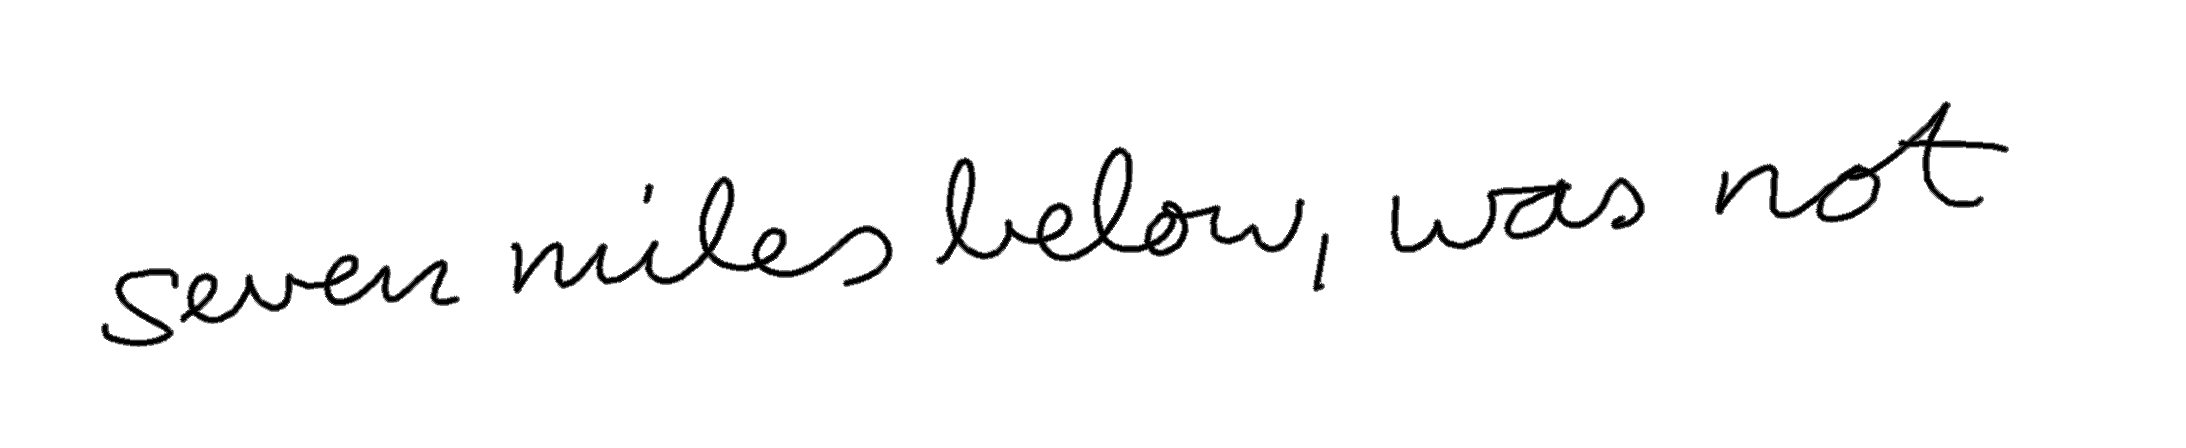 seven miles below, was not